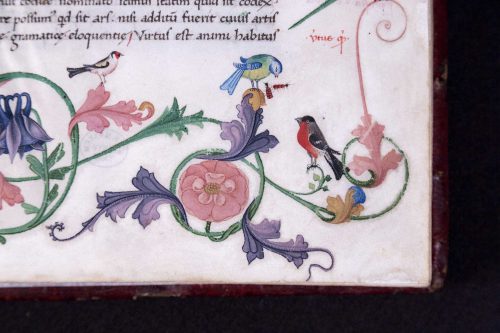 nominato scimus statim quid sit codex
possum⁹ qd sit ars. nisi additū fuerit cuius artis
gramaticę eloquentie; Virtus est animi habitus